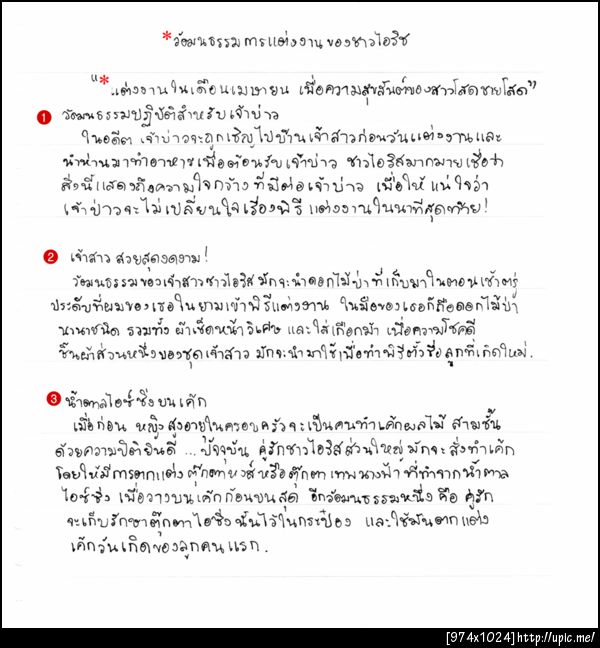 *วัฒนธรรมการแต่งงานของชาวไอริช
"*แต่งงานในเดือนเมษายน เพื่อความสุขสันต์ของสาวโสดชายโสด"
1 วัฒนธรรมปฏิบัติสำหรับเจ้าบ่าว
ในอดีต เจ้าบ่าวจะถูกเชิญไปบ้านเจ้าสาวก่อนวันแต่งงานและ
นำห่านมาทำอาหารเพื่อต้อนรับเจ้าบ่าว ชาวไอริสมากมายเชื่อว่า
สิ่งนี้แสดงถึงความใจกว้างที่มีต่อเจ้าบ่าว เพื่อให้แน่ใจว่า
เจ้าบ่าวจะไม่เปลี่ยนใจเรื่องพิธีแต่งงานในนาทีสุดท้าย!
2 เจ้าสาว สวยสุดงดงาม!
วัฒนธรรมของเจ้าสาวชาวไอริส มักจะนำดอกไม้ป่าที่เก็บมาในตอนเช้าตรู่
ประดับที่ผมของเธอในยามเข้าพิธีแต่งงาน ในมือของเธอก็ถือดอกไม้ป่า
นานาชนิด รวมทั้ง ผ้าเช็ดหน้าวิเศษ และใส่เกือกม้า เพื่อความโชคดี
ชิ้นผ้าส่วนหนึ่งของชุดเจ้าสาว มักจะนำมาใช้เพื่อทำพิธีตั้งชื่อลูกที่เกิดใหม่.
3 น้ำตาลไอซ์ซิ่งบนเค้ก
เมื่อก่อน หญิงสูงอายุในครอบครัวจะเป็นคนทำเค้กผลไม้ สามชั้น
ด้วยความปิติยินดี ... ปัจจุบัน คู่รักชาวไอริสส่วนใหญ่มักจะสั่งทำเค้ก
โดยให้มีการตกแต่งตุ๊กตาหงส์หรือตุ๊กตาเทพนางฟ้า ที่ทำจากน้ำตาล
ไอซ์ซิ่ง เพื่อวางบนเค้กก่อนบนสุด อีกวัฒนธรรมหนึ่ง คือ คู่รัก
จะเก็บรักษาตุ๊กตาไอซิ่งนั้นไว้ในกระป๋อง และใช้มันตกแต่ง
เค้กวันเกิดของลูกคนแรก.
[974x1024]http://upic.me/